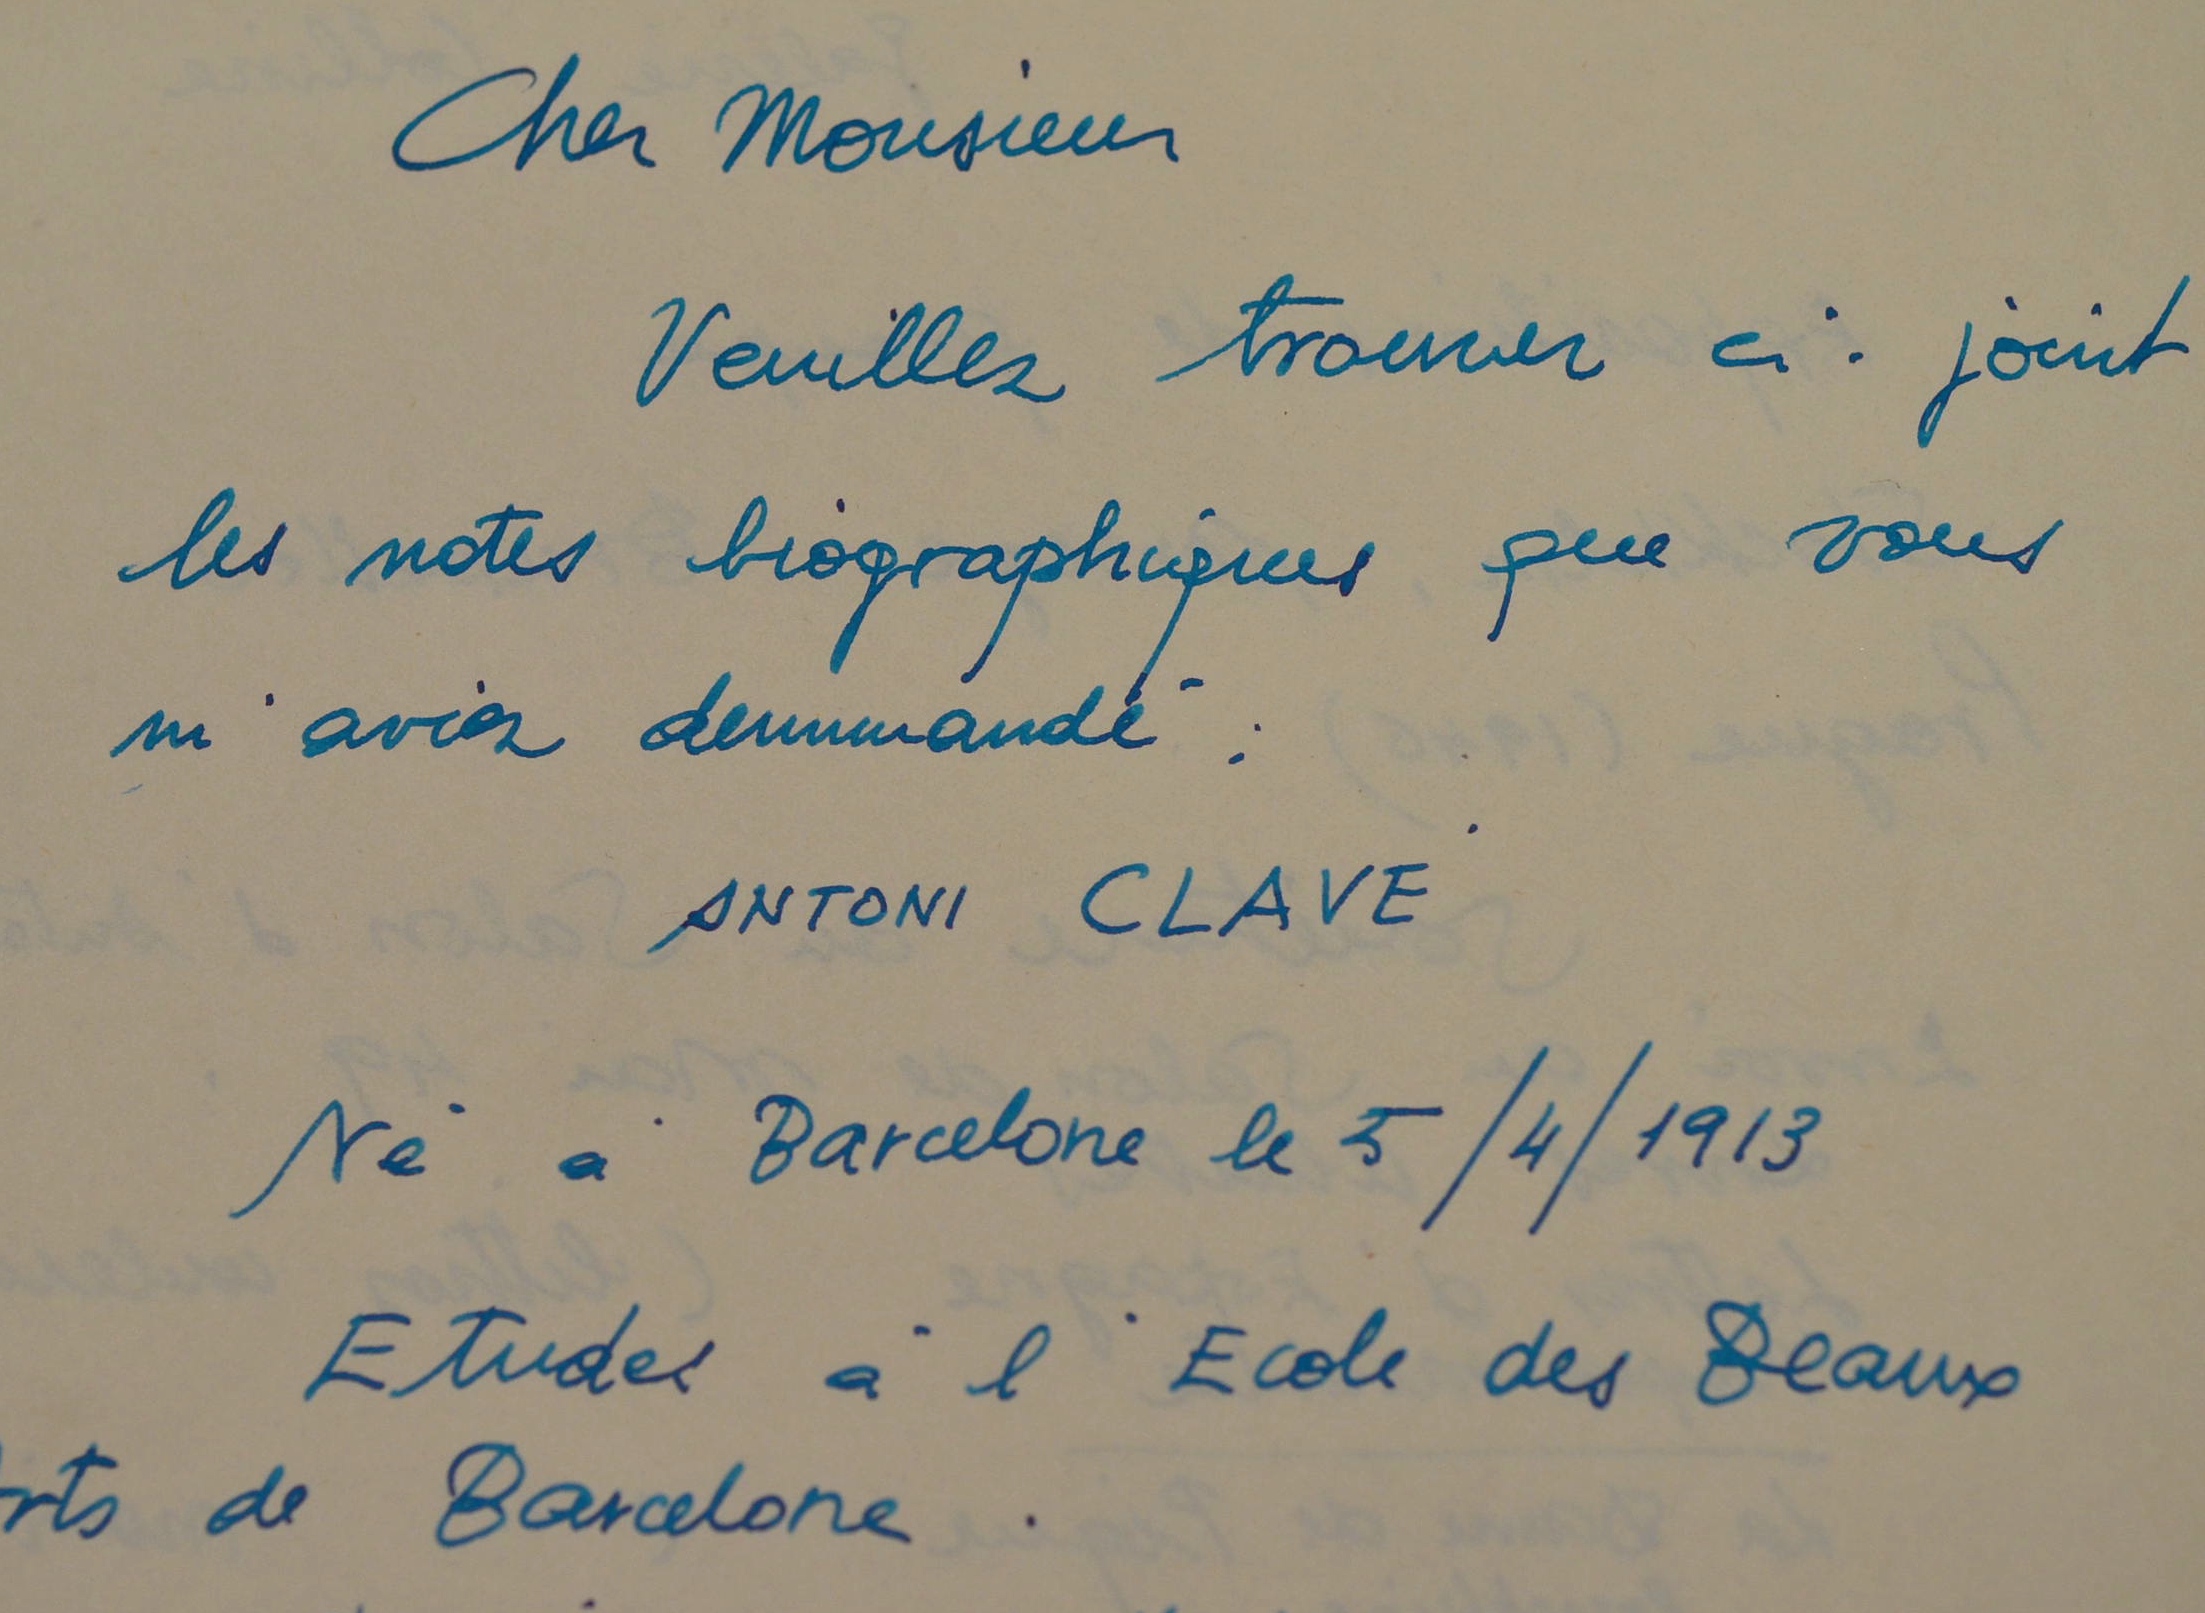 Cher Monsieur
Veuillez trouver ci-joint
les notes biographiques que vous
m'aviez demmandé :
ANTONI CLAVÉ
Né à Barcelone le 5/4/1913
Etudes à l'Ecole des Beaux
Arts de Barcelone.